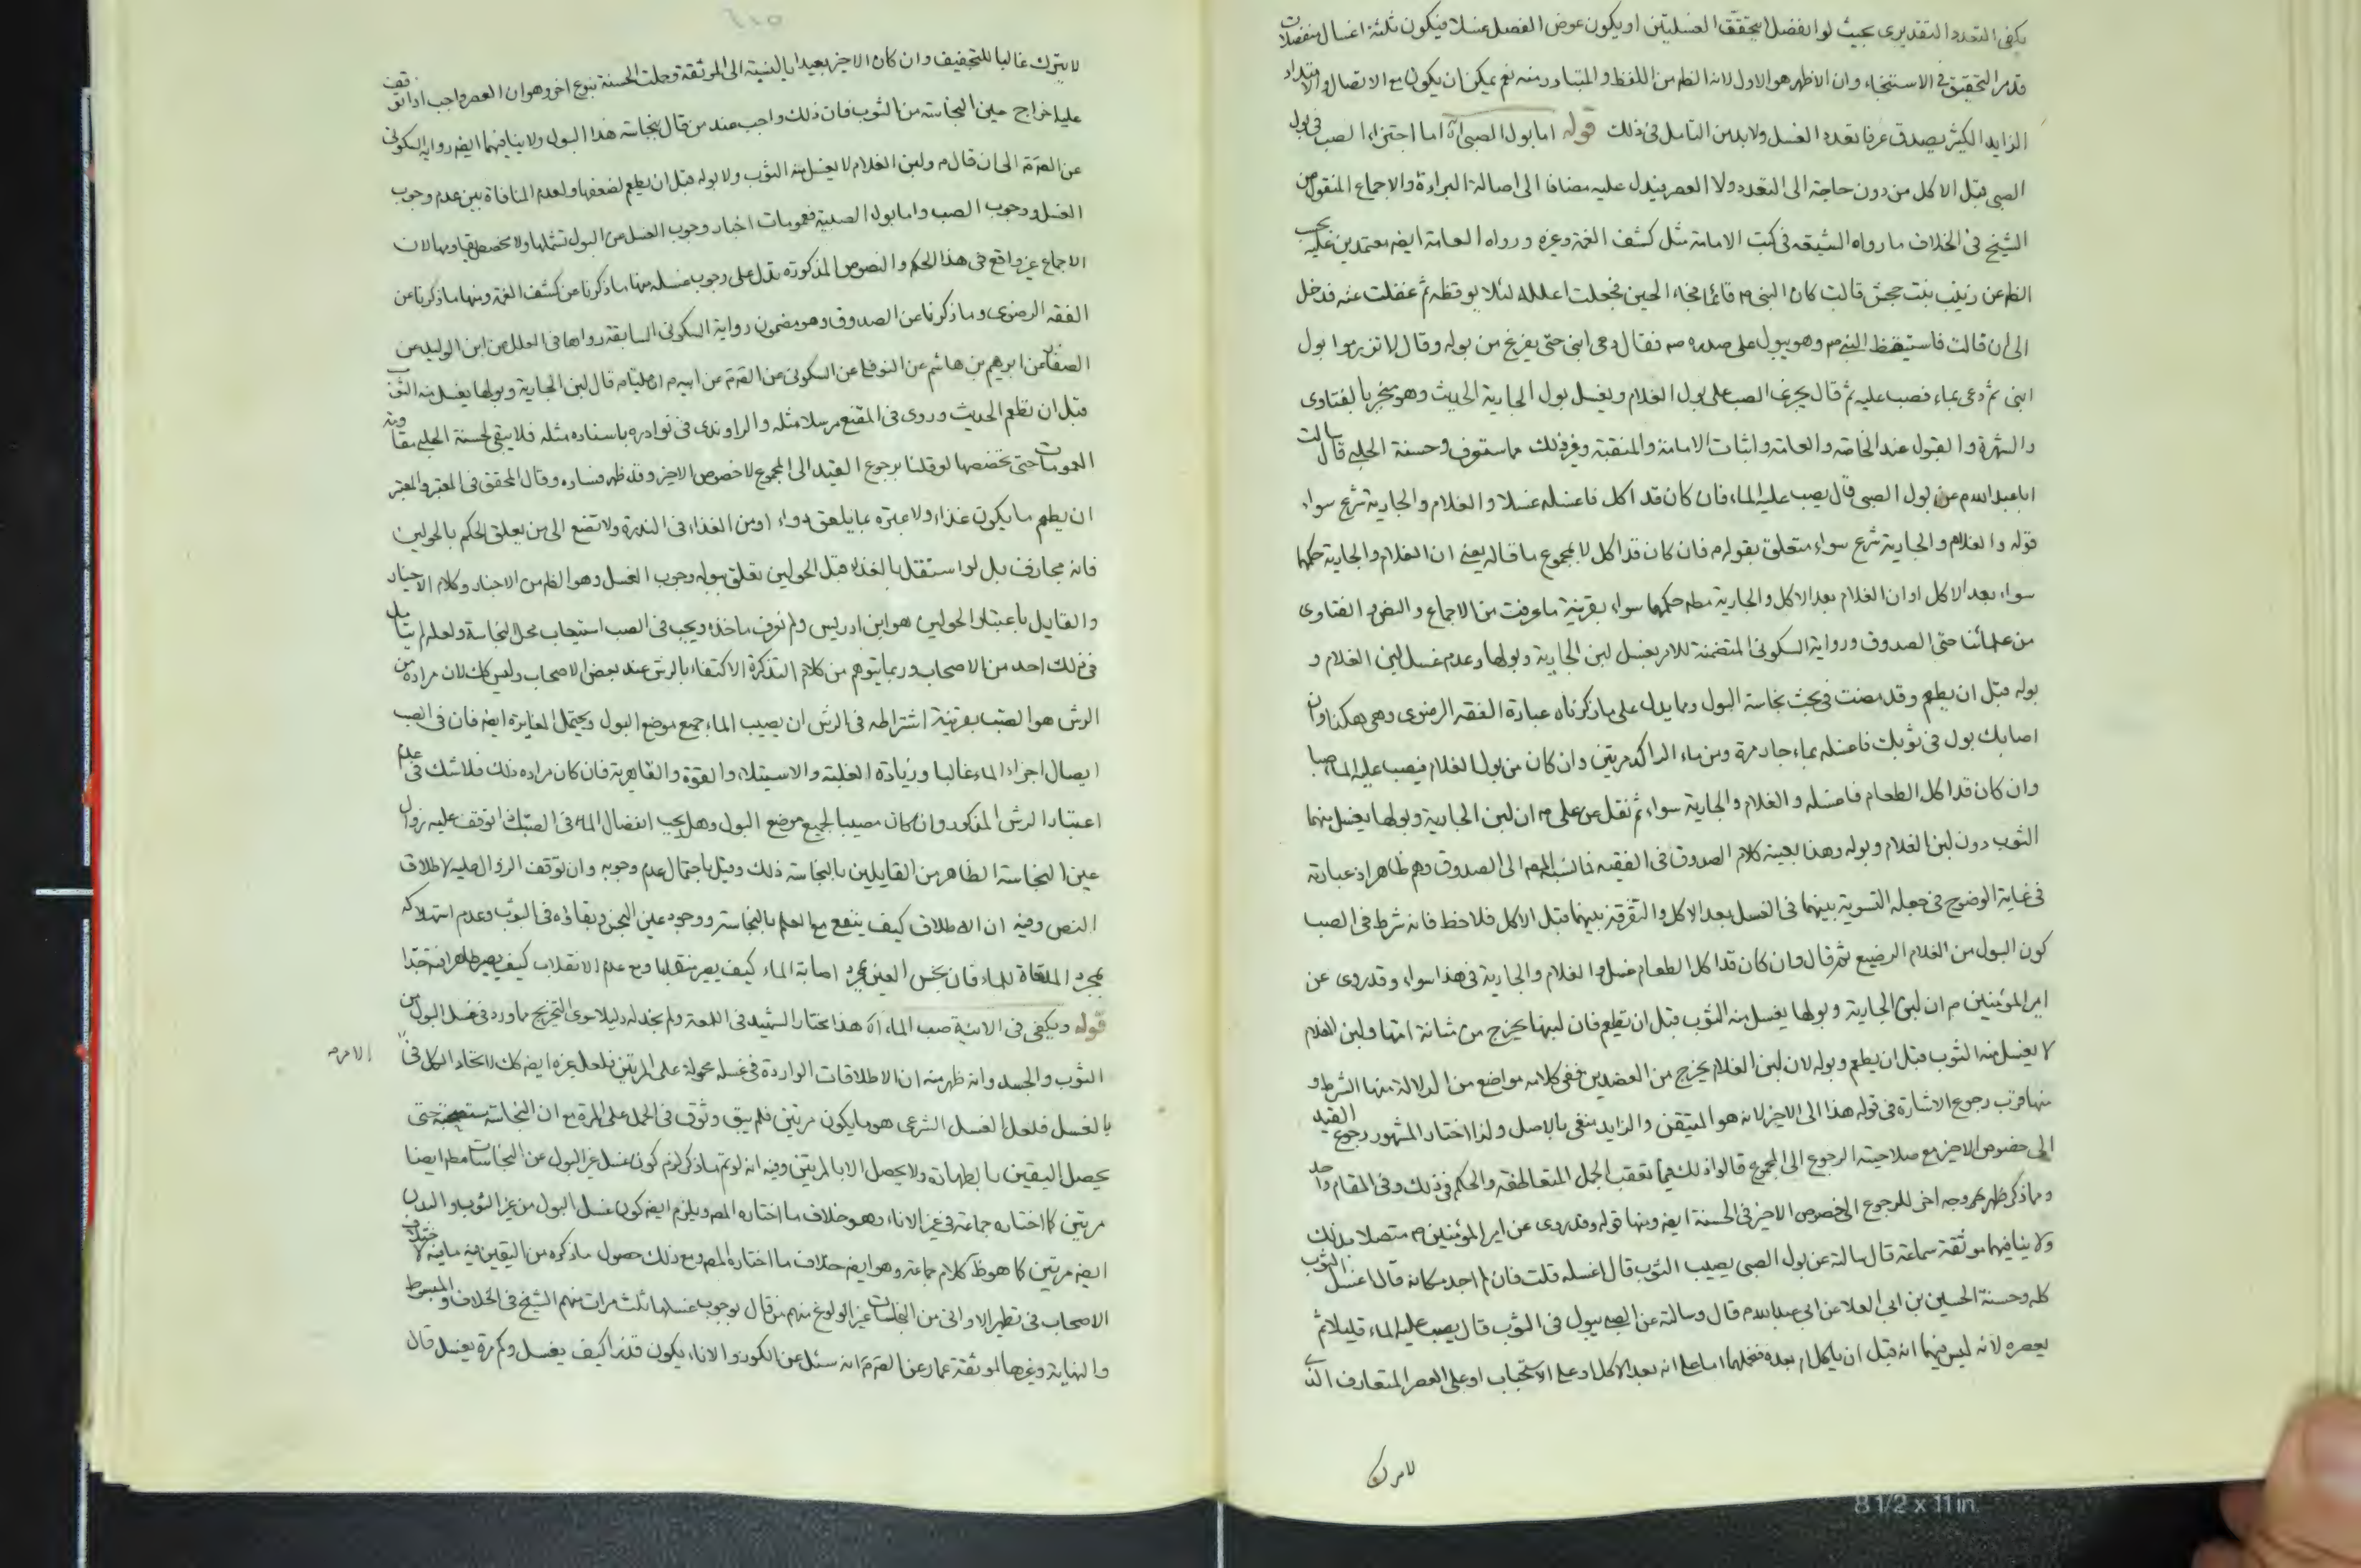 يكفى التعدد التقديرى بحيث لو انفصل لتحقق الغسلتين او يكون عوض الفصل غسلا فيكون ثلثة اغسال منفصلات
قد مر التحقيق فى الاستنجاء وان الاظهر هو الاول لانه الظم من اللفظ والمتبادر منه نعم يمكن ان يكون مع الاتصال والامتداد
الزايد الكثير يصدق عرفا تعدد الغسل ولابد من التامل فى ذلك قوله اما بول الصبى اه اما اجتزاء الصب فى بول
الصبى قبل الاكل من دون حاجة الى التعدد ولا العصر فيدل عليه مضافا الى اصالة البراءة والاجماع المنقول من
الشيخ فى الخلاف ما رواه الشيعة فى كتب الامامة مثل كشف الغمة وغيره ورواه العامة ايضه معتمدين عليه بحسب
الظم عن زينب بنت جحش قالت كان النبى ص قائما فجاء الحسين فجعلت اعلله لئلا يوقظه ثم غفلت عنه فدخل
الى ان قالت فاستيقظ النبى ص وهو يبول على صدره ص فقال دعى ابنى حتى يفرغ من بوله وقال لا تزرموا بول
ابنى ثم دعى بماء فصب عليه ثم قال يجزى الصب على بول الغلام ويغسل بول الجارية الحديث وهو منجبر بالفتاوى
والشهرة والقبول عند الخاصة والعامة واثبات الامامة والمنقبة وغير ذلك مما ستعرف وحسنة الحلبى قال سالت
ابا عبد الله م عن بول الصبى قال يصب عليه الماء فان كان قد اكل فاغسله غسلا والغلام والجارية شرع سواء
قوله والغلام والجارية شرع سواء متعلق بقوله م فان كان قد اكل لا بمجموع ما قاله يعنى ان الغلام والجارية حكمها
سواء بعد الاكل او ان الغلام بعد الاكل والجارية مطه حكمهما سواء بقرينة ما عرفت من الاجماع والنص والفتاوى
من علمائنا حتى الصدوق ورواية السكونى المتضمنة للامر بغسل لبن الجارية وبولها وعدم غسل لبن الغلام و
بوله قبل ان يطعم وقد مضت فى بحث نجاسة البول ومما يدل على ما ذكرناه عبارة الفقه الرضوى وهى هكذا وان
اصابك بول فى ثوبك فاغسله بماء جار مرة ومن ماء الراكد مرتين وان كان من بول الغلام فيصب عليه الماء صبا
وان كان قد اكل الطعام فاغسله والغلام والجارية سواء ثم نقل عن على م ان لبن الجارية وبولها يغسل منهما
الثوب دون لبن الغلام وبوله وهذا بعينه كلام الصدوق فى الفقيه فما نسبه المصه الى الصدوق وهم ظاهر اذ عبارته
فى غاية الوضوح فى جعله التسوية بينهما فى الغسل بعد الاكل والتفرقة بينهما قبل الاكل فلاحظ فانه شرط فى الصب
كون البول من الغلام الرضيع ثم قال وان كان قد اكل الطعام غسل والغلام والجارية فى هذا سواء وقد روى عن
امير المؤمنين م ان لبن الجارية وبولها يغسل منه الثوب قبل ان تطعم فان لبنها يخرج من مثانة امها ولبن الغلام
لا يغسل منه الثوب قبل ان يطعم وبوله لان لبن الغلام يخرج من العضدين ففى كلامه مواضع من الدلالة منها الشرط و
منها قرب رجوع الاشارة فى قوله هذا الى الاخير لانه هو المتيقن والزايد ينفى بالاصل ولذا اختار المشهور رجوع القيد
الى خصوص الاخير مع صلاحيته الرجوع الى المجموع قالوا ذلك فيما تعقب الجمل المتعاطفة والحكم فى ذلك وفى المقام واحد
ومما ذكر ظهر وجه اخر للرجوع الى خصوص الاخير فى الحسنة ايضه ومنها قوله وقد روى عن امير المؤمنين م متصلا بذلك
ولا ينافيهما موثقة سماعة قال سالته عن بول الصبى يصيب الثوب قال اغسله قلت فان لم اجد مكانه قال اغسل الثوب
كله وحسنة الحسين بن ابى العلا عن ابى عبد الله م قال وسالته عن الصبى يبول فى الثوب قال يصب عليه الماء قليلا ثم
يعصره لانه ليس فيهما انه قبل ان ياكل ام بعده فنحملهما اما على انه بعد الاكل او على الاستحباب او على العصر المتعارف الذى
لا يترك
لا يترك غالبا للتجفيف وان كان الاخير بعيدا بالنسبة الى الموثقة وحملت الحسنة بنوع اخر وهو ان العصر واجب اذا توقف
عليه اخراج عين النجاسة من الثوب فان ذلك واجب عند من قال بنجاسة هذا البول ولا ينافيهما ايضه رواية السكونى
عن الصم الى ان قال م ولبن الغلام لا يغسل منه الثوب ولا بوله قبل ان يطعم لضعفها ولعدم المنافاة بين عدم وجوب
الغسل ووجوب الصب واما بول الصبية فعمومات اخبار وجوب الغسل من البول تشملها ولا مخصص يقاومها لان
الاجماع غير واقع فى هذا الحكم والنصوص المذكورة تدل على وجوب غسله منها ما ذكرنا من كشف الغمة ومنها ما ذكرنا عن
الفقه الرضوى وما ذكرنا عن الصدوق وهو مضمون رواية السكونى السابقة رواها فى العلل عن ابن الوليد عن
الصفار عن ابرهيم بن هاشم عن النوفلى عن السكونى عن الصم عن ابيه م ان عليا م قال لبن الجارية وبولها يغسل منه الثوب
قبل ان تطعم الحديث وروى فى المقنع مرسلا مثله والراوندى فى نوادره باسناده مثله فلا يبقى لحسنة الحلبى مقاومة
العمومات حتى تخصصها لو قلنا برجوع القيد الى المجموع لا خصوص الاخير وقد ظهر فساده وقال المحقق فى المعتبر والمعتبر
ان يطعم ما يكون غذاء ولا عبرة بما يلعق دواء او من الغذاء فى الندرة ولا تصغ الى من يعلق الحكم بالحولين
فانه مجازف بل لو استقل بالغذاء قبل الحولين تعلق ببوله وجوب الغسل وهو الظم من الاخبار وكلام الاخيار
والقايل باعتبار الحولين هو ابن ادريس ولم نعرف ماخذه ويجب فى الصب استيعاب محل النجاسة ولعله لم يتامل
فى ذلك احد من الاصحاب وربما يتوهم من كلام التذكرة الاكتفاء بالرش عند بعض الاصحاب وليس كك لان مراده من
الرش هو الصب بقرينة اشتراطه فى الرش ان يصيب الماء جميع موضع البول ويحتمل المغايرة ايضه فان فى الصب
ايصال اجزاء الماء غالبا وزيادة الغلبة والاستيلاء والقوة والقاهرية فان كان مراده ذلك فلا شك فى عدم
اعتبار الرش المذكور وان كان مصيبا لجميع موضع البول وهل يجب انفصال الماء فى الصب اذا توقف عليه زوال
عين النجاسة الظاهر من القايلين بالنجاسة ذلك وقيل باحتمال عدم وجوبه وان توقف الزوال عليه لاطلاق
النص وفيه ان الاطلاق كيف ينفع مع العلم بالنجاسة ووجود عين النجس وبقاؤه فى الثوب وعدم استهلاكه
بمجرد الملاقاة للماء فان نجس العين بمجرد اصابة الماء كيف يصير منقلبا ومع عدم الانقلاب كيف يصير طاهرا فتدبر
قوله ويكفى فى الانية صب الماء اه هذا مختار الشهيد فى اللمعة ولم نجد له دليلا سوى التخريج مما ورد فى غسل البول من
الثوب والجسد وانه ظهر منه ان الاطلاقات الواردة فى غسله محمولة على المرتين فلعل غيره ايضه كك لاتحاد الكل فى الامر
بالغسل فلعل الغسل الشرعى هو ما يكون مرتين فلم يبق وثوق فى الحمل على المرة مع ان النجاسة مستصحبة حتى
يحصل اليقين بالطهارة ولا يحصل الا بالمرتين وفيه انه لو تم ما ذكر لزم كون غسل غير البول من النجاسات مطه ايضا
مرتين كما اختاره جماعة فى غير الاناء وهو خلاف ما اختاره المصه ويلزم ايضه كون غسل البول من غير الثوب والبدن
ايضه مرتين كما هو ظ كلام جماعة وهو ايضه خلاف ما اختاره المصه ومع ذلك حصول ما ذكره من اليقين فيه ما فيه لاختلاف
الاصحاب فى تطهير الاوانى من النجاسات غير الولوغ منهم من قال بوجوب غسلها ثلث مرات منهم الشيخ فى الخلاف والمبسوط
والنهاية وغيرها لموثقة عمار عن الصم م انه سئل عن الكوز والاناء يكون قذرا كيف يغسل وكم مرة يغسل قال